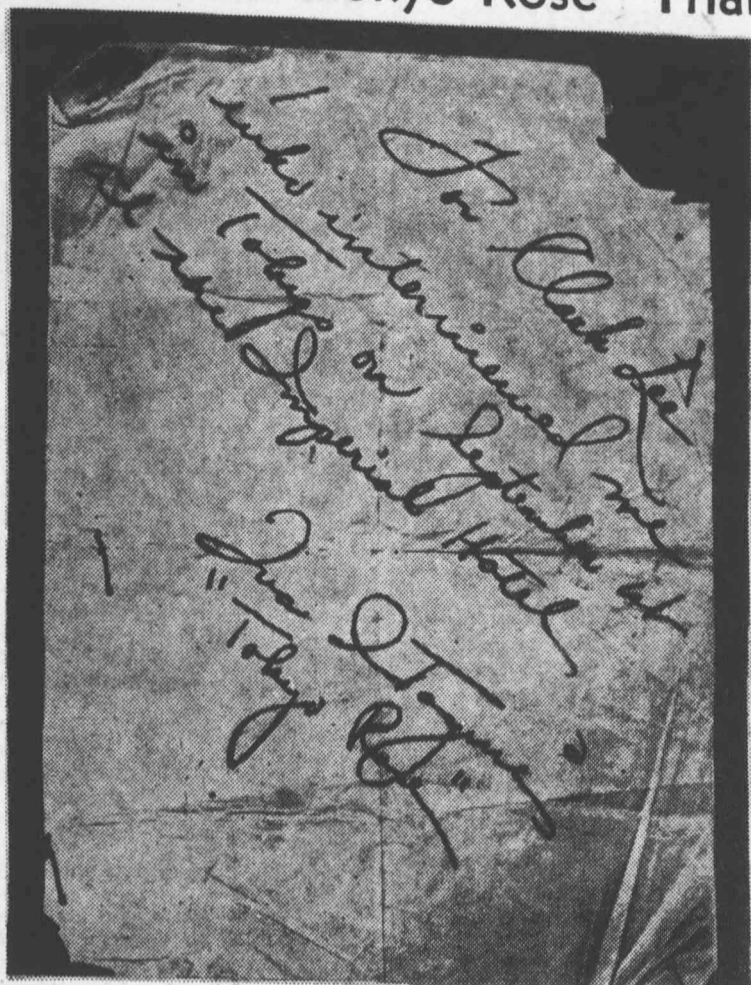 Tokyo Rose
For Clark Lee
who interviewed me
in Tokyo on September 1st
at the Imperial Hotel
Iva Toguri
"Tokyo Rose"